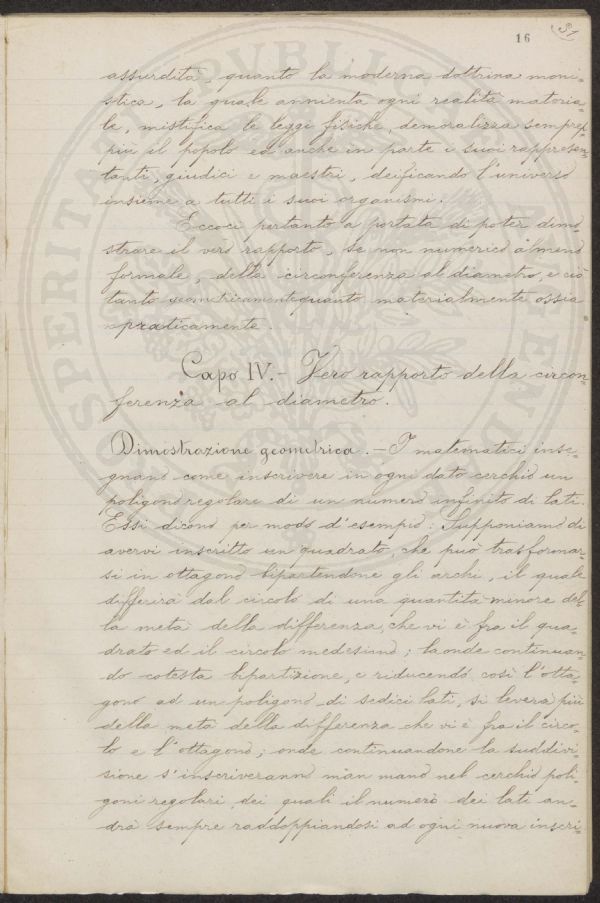 16 (31
assurdità, quanto la moderna dottrina moni=
stica, la quale annienta ogni realità materia=
le, mistifica le leggi fisiche, demoralizza sempre
più il popolo ed anche in parte i suoi rappresen=
tanti, giudici e maestri, deificando l'universo
insieme a tutti i suoi organismi.
Eccoci pertanto a portata di poter dimo=
strare il vero rapporto, se non numerico almeno
formale, della circonferenza al diametro, e ciò
tanto geometricamente quanto materialmente ossia
praticamente.
Capo IV. - Vero rapporto della circon=
ferenza al diametro.
Dimostrazione geometrica. - I matematici inse=
gnano come inscrivere in ogni dato cerchio un
poligono regolare di un numero infinito di lati.
Essi dicono per modo d'esempio: Supponiamo di
avervi inscritto un quadrato, che può trasformar=
si in ottagono bipartendone gli archi, il quale
differirà dal circolo di una quantità minore del=
la metà della differenza, che vi è fra il qua=
drato ed il circolo medesimo; laonde continuan=
do cotesta bipartizione, e riducendo così l'otta=
gono ad un poligono di sedici lati, si leverà più
della metà della differenza che vi è fra il circo=
lo e l'ottagono; onde continuandone la suddivi=
sione s'inscriveranno man mano nel cerchio poli=
goni regolari, dei quali il numero dei lati an=
drà sempre raddoppiandosi ad ogni nuova inscri=
PVBLICAE
PROSPERITATI